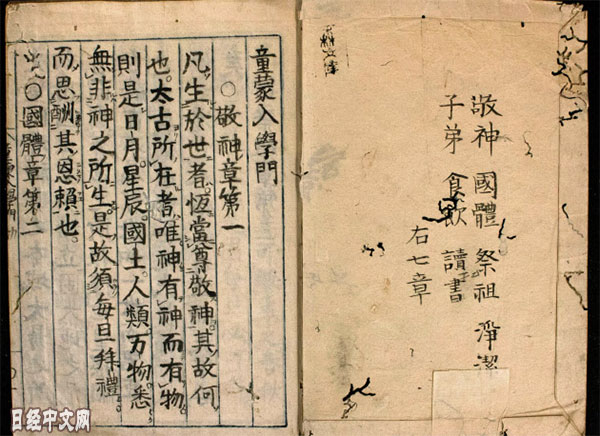 敬神 國體 祭祖 淨潔
子弟 食飲 讀書
右七章
童蒙入學門
○敬神章第一
凡生於世者恆當尊敬神其故何
也太古所在者唯神有神而有物
則是日月星辰國土人類万物悉
無非神之所生是故須每旦拜禮
而思酬其恩賴也
○國體章第二
日经中文网